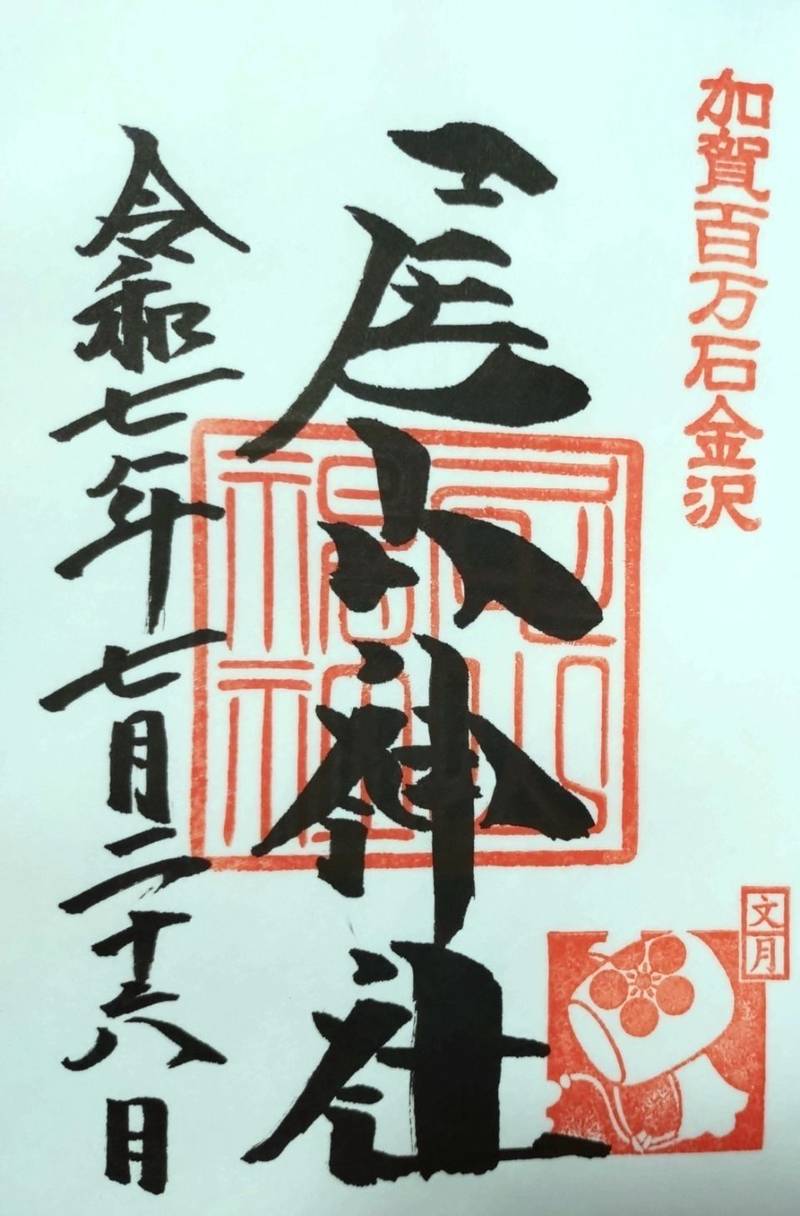 加賀百万石金沢
尾山神社
令和七年七月二十六日
文月